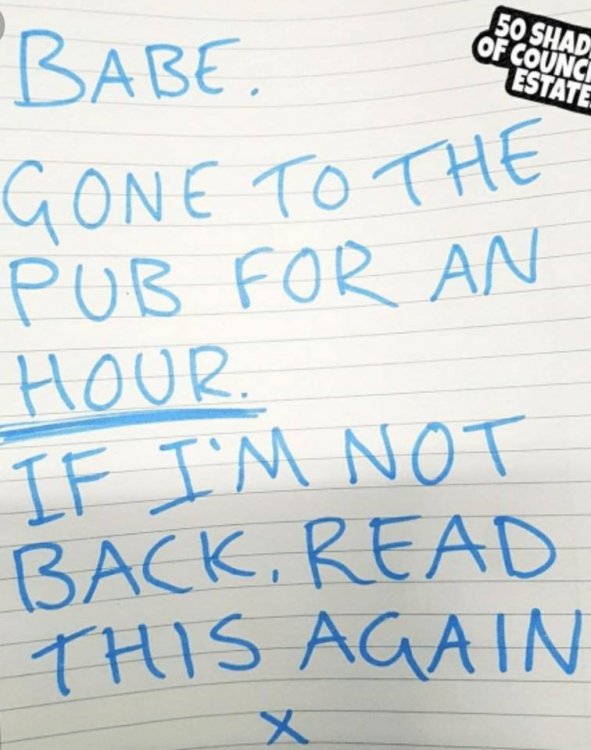 50 SHAD
OF COUNCI
ESTATE
BABE.
GONE TO THE
PUB FOR AN
HOUR.
IF I'M NOT
BACK, READ
THIS AGAIN
X